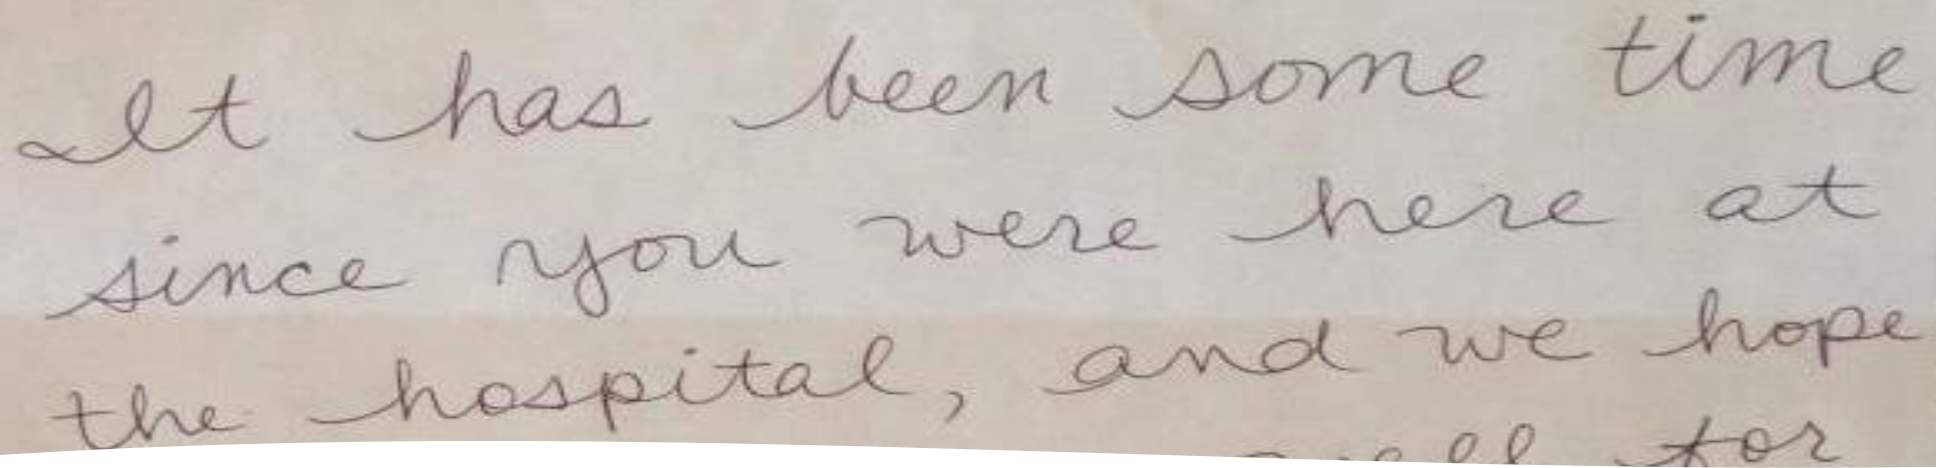 It has been some time
since you were here at
the hospital, and we hope
for